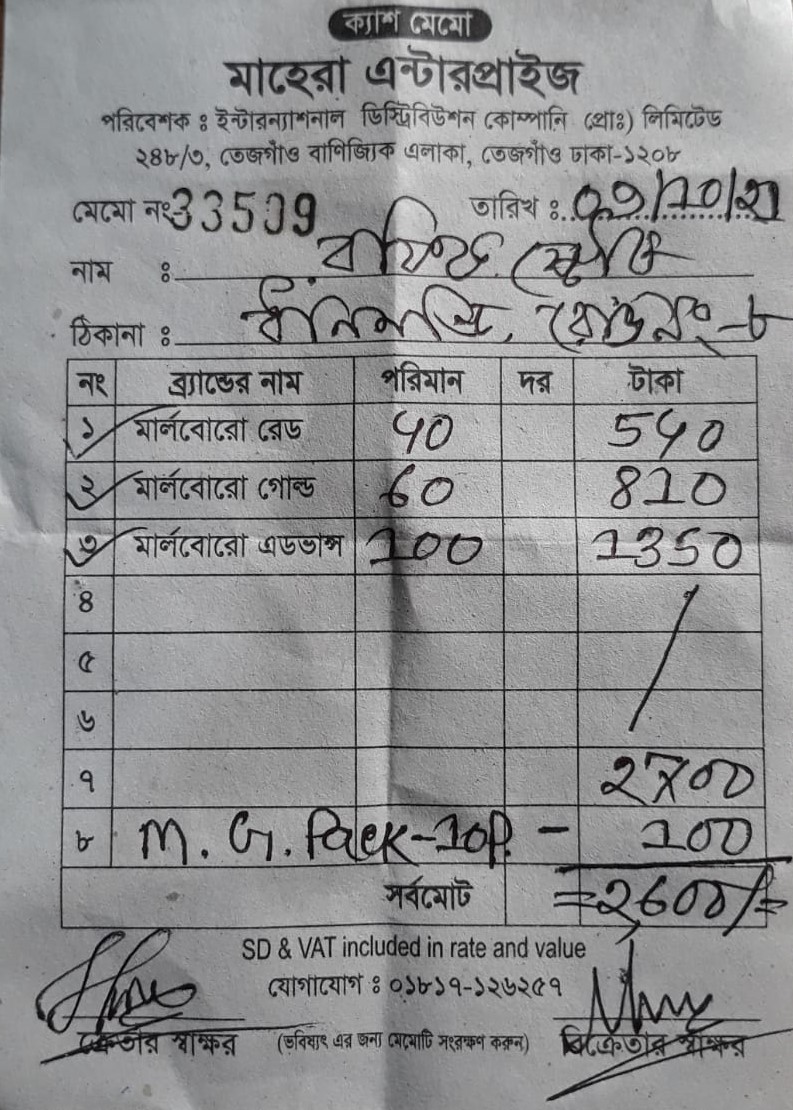 ক্যাশ মেমো
মাহেরা এন্টারপ্রাইজ
পরিবেশক ঃ ইন্টারন্যাশনাল ডিস্ট্রিবিউশন কোম্পানি (প্রাঃ) লিমিটেড
২৪৮/৩, তেজগাঁও বাণিজ্যিক এলাকা, তেজগাঁও ঢাকা-১২০৮
মেমো নং 33509 তারিখ ঃ 09/10/21
নাম ঃ
ঠিকানা ঃ রোড নং-৮
নং ব্র্যান্ডের নাম পরিমান দর টাকা
১ মার্লবোরো রেড 40 540
২ মার্লবোরো গোল্ড 60 810
৩ মার্লবোরো এডভান্স 100 1350
৪
৫
৬
৭ 2700
৮ M. G. Pack-10P. - 100
সর্বমোট =2600/=
SD & VAT included in rate and value
যোগাযোগ ঃ ০১৮১৭-১২৬২৫৭
ক্রেতার স্বাক্ষর (ভবিষ্যৎ এর জন্য মেমোটি সংরক্ষণ করুন) বিক্রেতার স্বাক্ষর